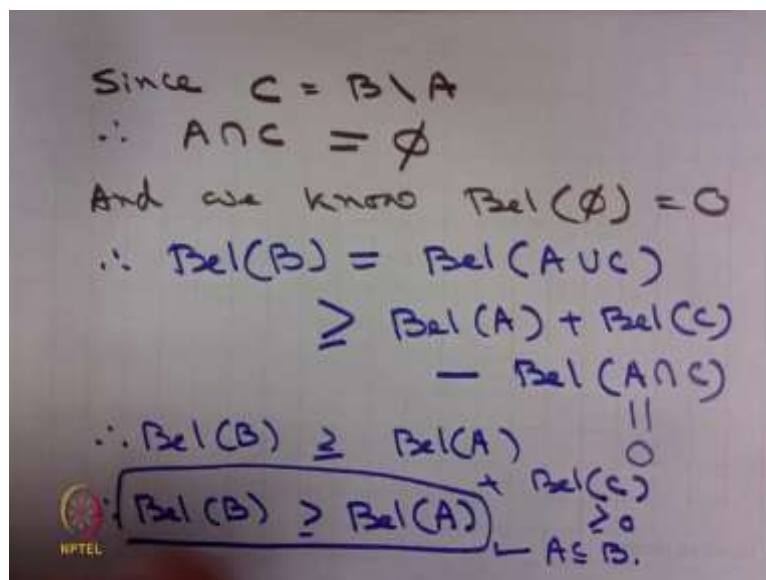 Since C = B \ A
∴ A ∩ C = ∅
And we know Bel(∅) = 0
∴ Bel(B) = Bel(A ∪ C)
≥ Bel(A) + Bel(C)
− Bel(A ∩ C)
||
0
∴ Bel(B) ≥ Bel(A)
+ Bel(C)
≥ 0
∴ Bel(B) ≥ Bel(A)
— A ⊆ B.
NPTEL